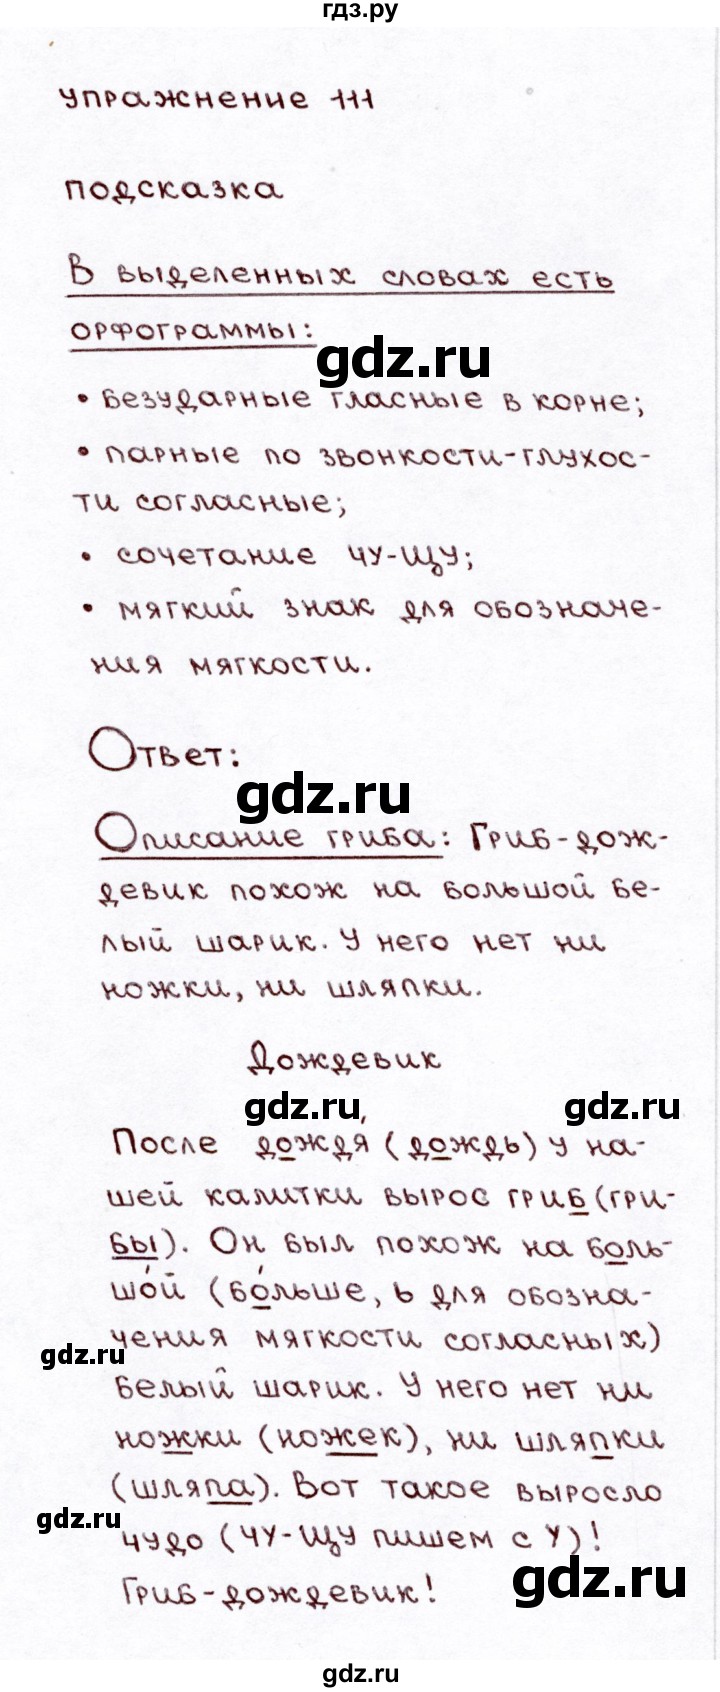 гдз.ру
упражнение 111
подсказка
В выделенных словах есть
орфограммы:
gdz.ru
• безударные гласные в корне;
• парные по звонкости-глухос-
ти согласные;
• сочетание чу-щу;
• мягкий знак для обозначе-
ния мягкости.
Ответ:
gdz.ru
Описание гриба: Гриб-дож-
девик похож на большой бе-
лый шарик. У него нет ни
ножки, ни шляпки.
Дождевик
gdz.ru gdz.ru
После дождя́ (до́ждь) у на-
шей калитки вырос гриб (гри-
бы). Он был похож на боль-
шо́й (бо́льше, ь для обозна-
чения мягкости согласных)
gdz.ru
белый шарик. У него нет ни
ножки (ножек), ни шляпки
(шляпа). Вот такое выросло
gdz.ru
чудо (чу-щу пишем с у)!
gdz.ru
Гриб-дождевик!
gdz.ru